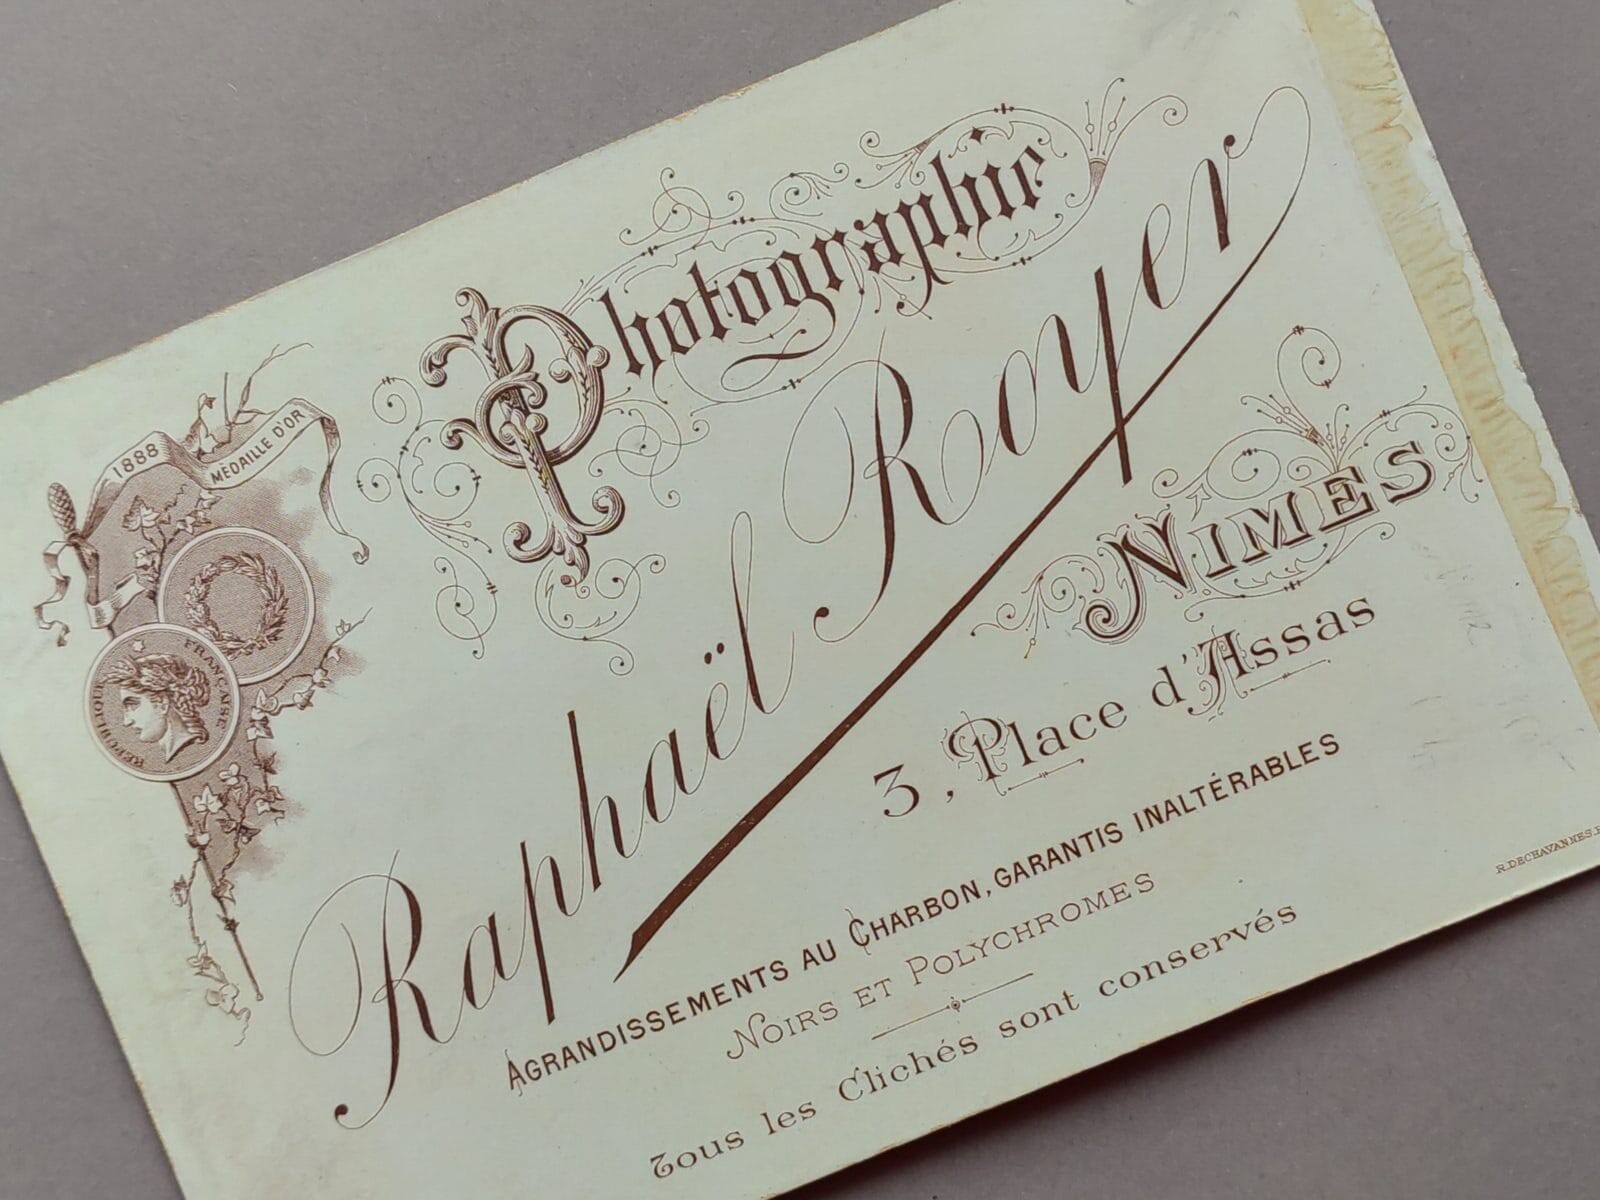 1888
MÉDAILLE D'OR
RÉPUBLIQUE FRANÇAISE
Photographie
Raphaël Royer
NIMES
3, Place d'Assas
AGRANDISSEMENTS AU CHARBON, GARANTIS INALTÉRABLES
NOIRS ET POLYCHROMES
Tous les Clichés sont conservés
R. DECHAVANNES.